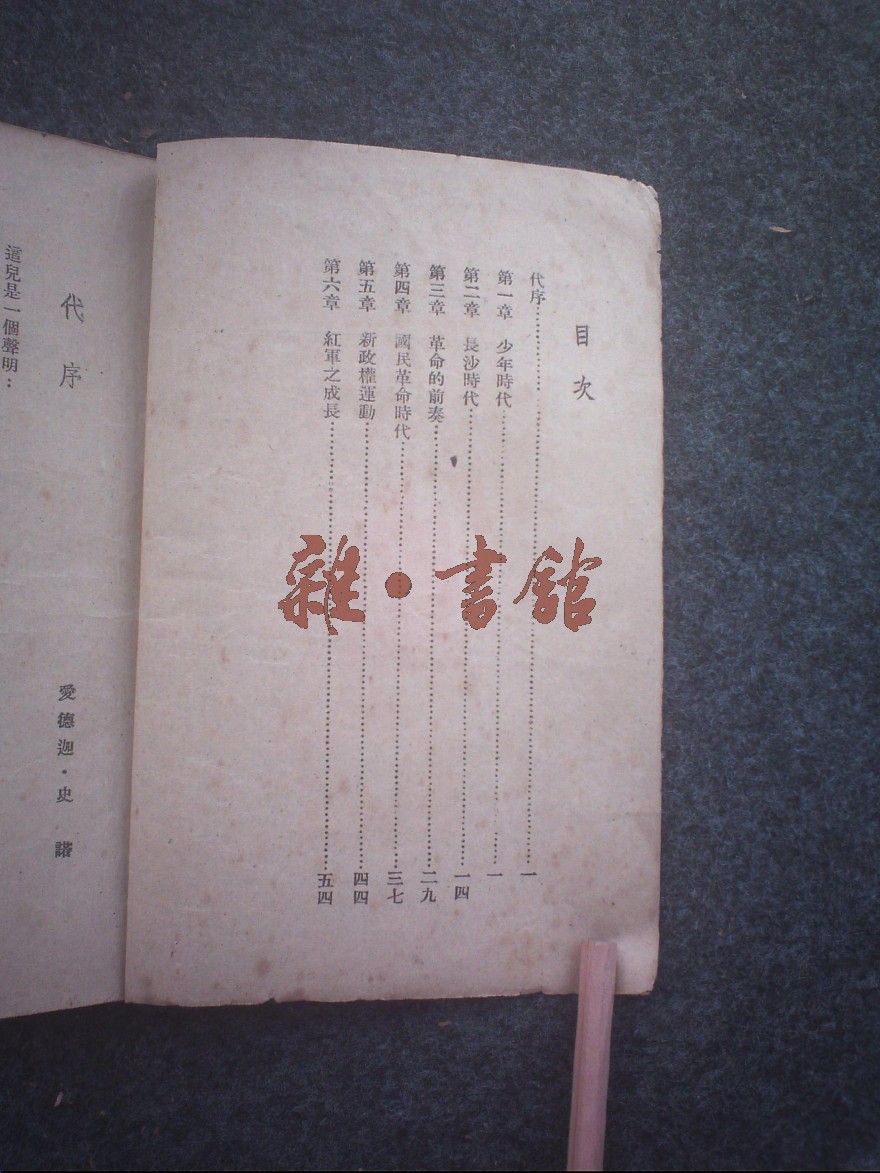 目次
代序……一
第一章 少年時代……一
第二章 長沙時代……一四
第三章 革命的前奏……二九
第四章 國民革命時代……三七
第五章 新政權運動……四四
第六章 紅軍之成長……五四
代序
愛德迦·史諾
這兒是一個聲明：
雜·書館